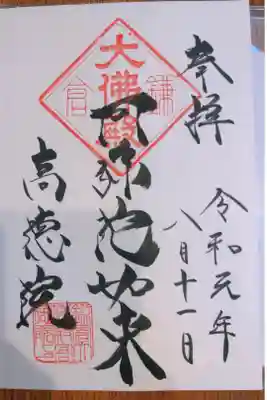 奉拝
令和元年
八月十一日
大佛殿
鎌倉
阿弥陀如来
高徳院